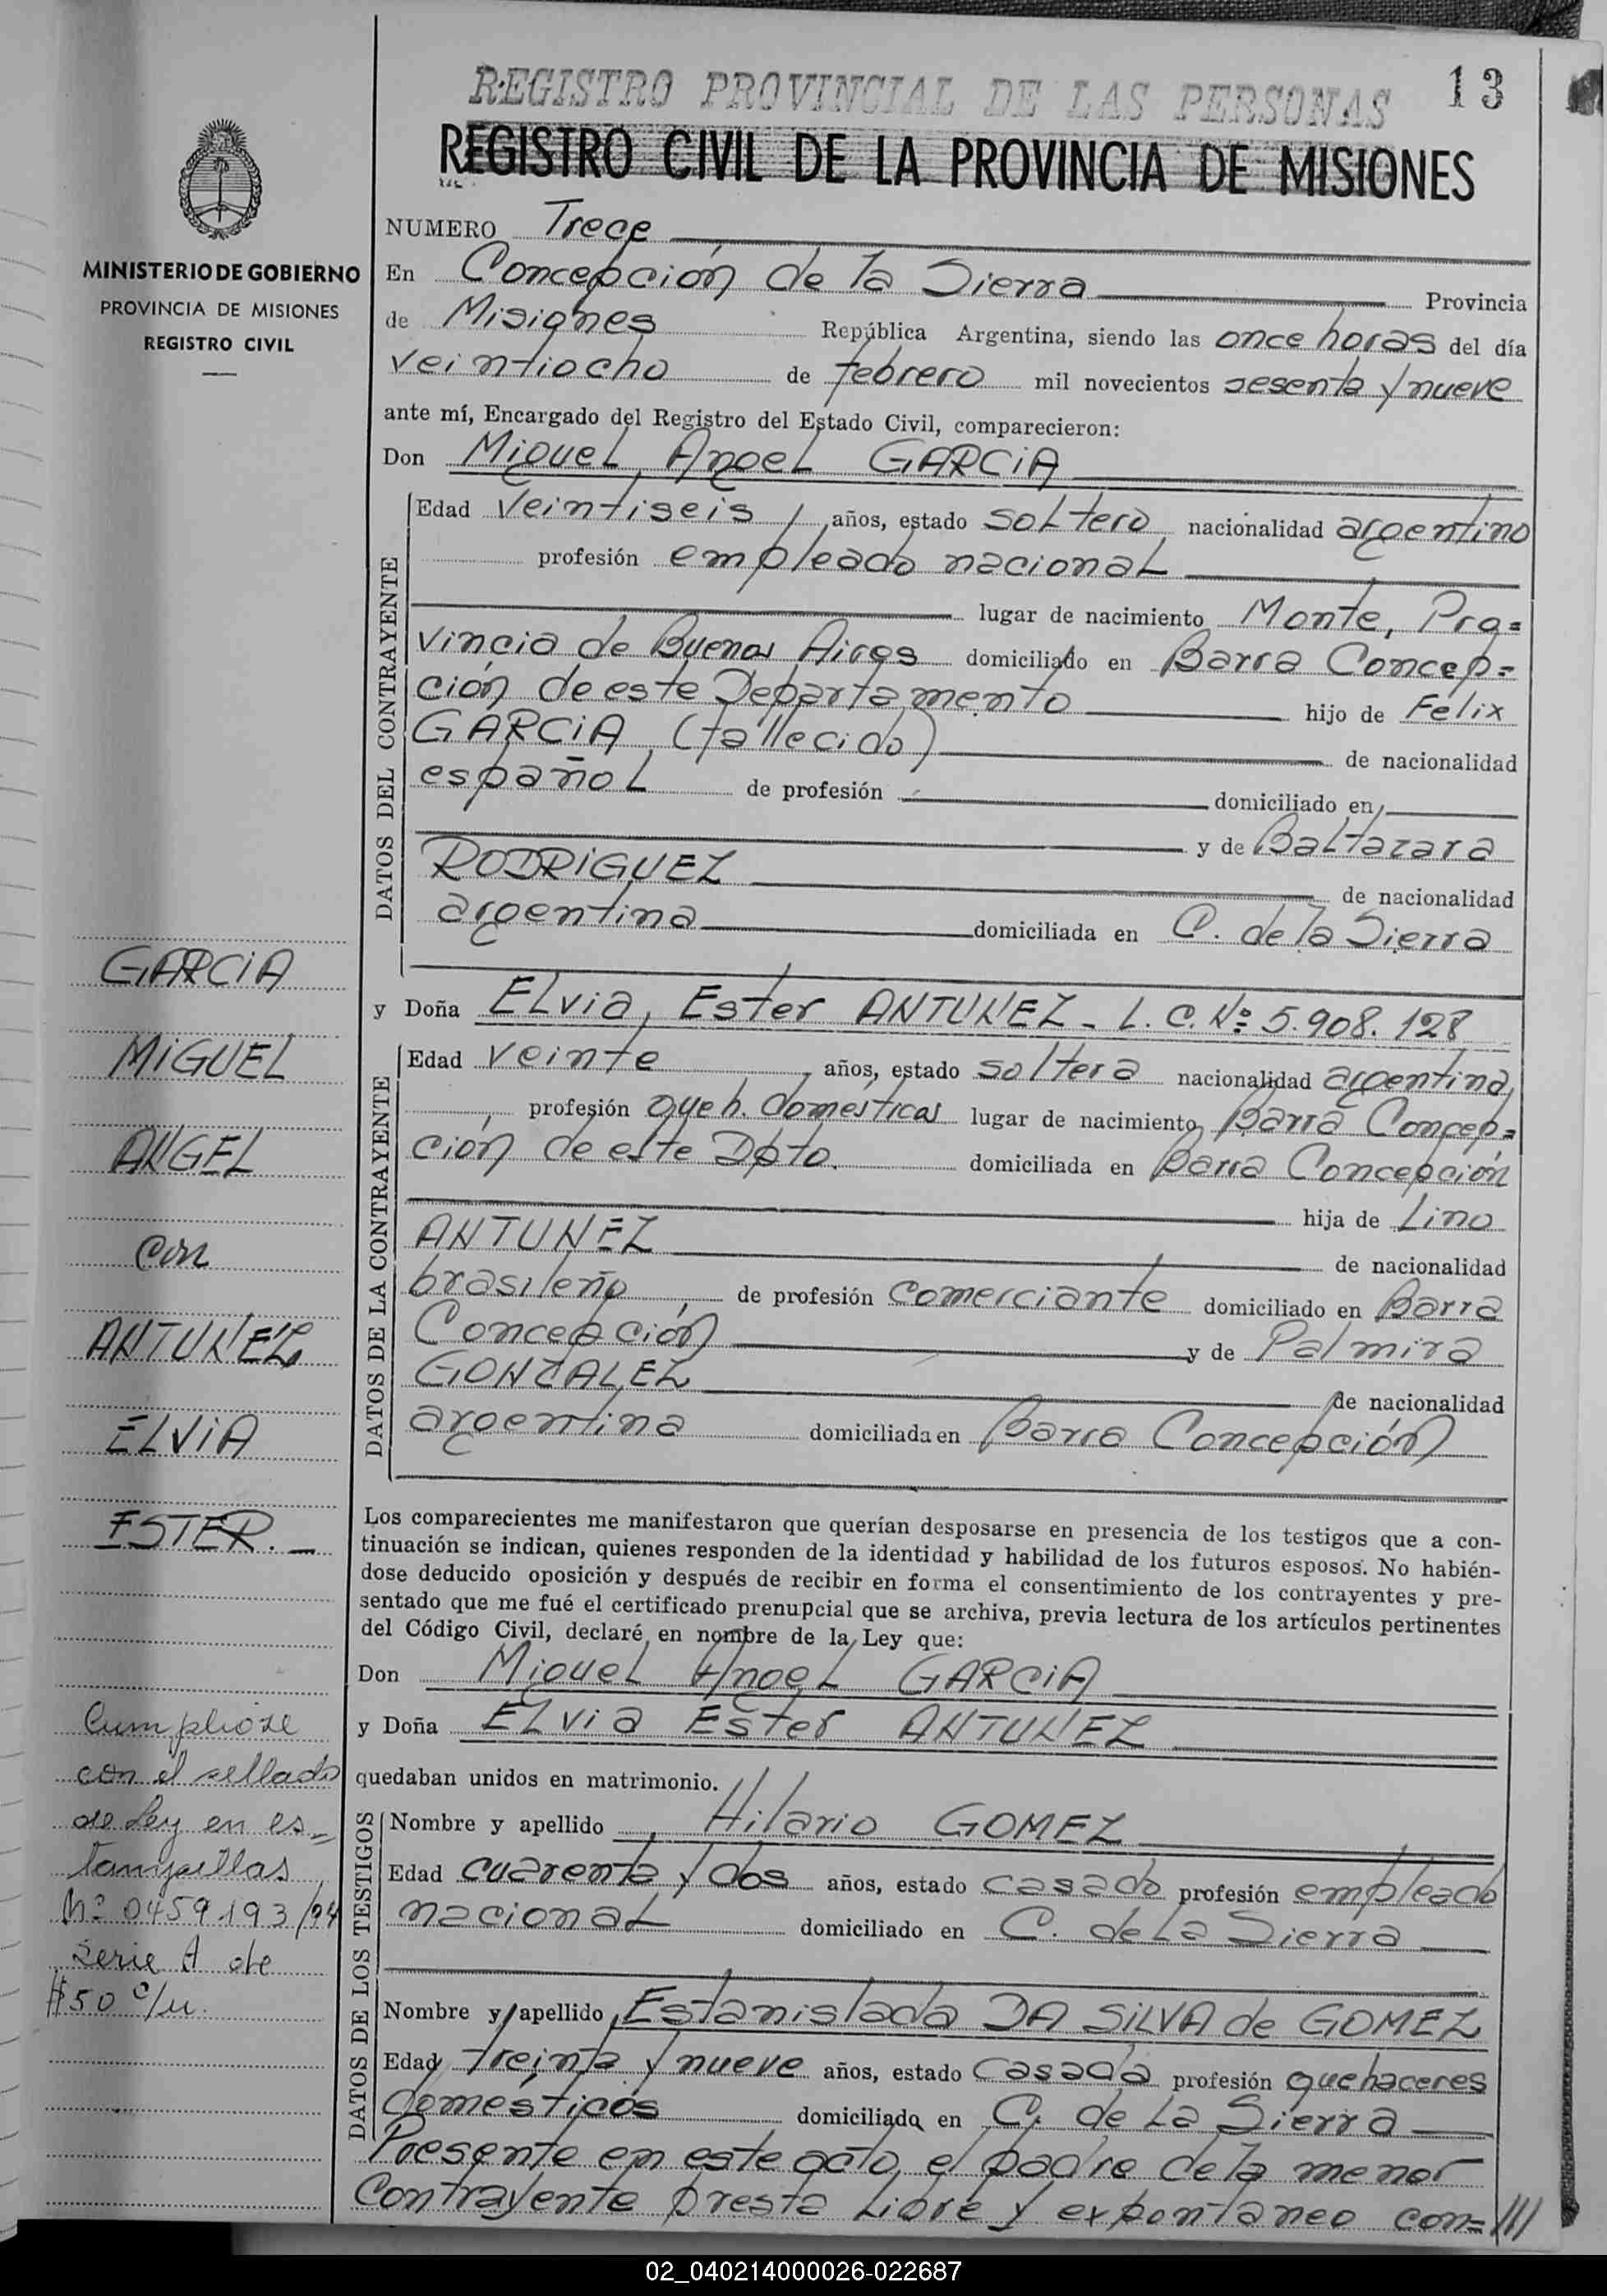 REGISTRO PROVINCIAL DE LAS PERSONAS 13
REGISTRO CIVIL DE LA PROVINCIA DE MISIONES
MINISTERIO DE GOBIERNO
PROVINCIA DE MISIONES
REGISTRO CIVIL
GARCIA
MIGUEL
ANGEL
con
ANTUNEZ
ELVIA
ESTER.
Cumpliose
con el sellado
de Ley en es-
tampillas
Nº 0459193/94
Serie A de
$50 c/u.
NUMERO Trece
En Concepción de la Sierra Provincia
de Misiones República Argentina, siendo las once horas del día
veintiocho de febrero mil novecientos sesenta y nueve
ante mí, Encargado del Registro del Estado Civil, comparecieron:
Don Miguel Angel GARCIA
DATOS DEL CONTRAYENTE
Edad veintiseis años, estado soltero nacionalidad argentino
profesión empleado nacional
lugar de nacimiento Monte, Pro=
vincia de Buenos Aires domiciliado en Barra Concep=
ción de este Departamento hijo de Felix
GARCIA, (fallecido) de nacionalidad
español de profesión domiciliado en
y de Baltazara
RODRIGUEZ de nacionalidad
argentina domiciliada en C. de la Sierra
y Doña Elvia Ester ANTUNEZ - L. C. Nº 5.908.128
DATOS DE LA CONTRAYENTE
Edad veinte años, estado soltera nacionalidad argentina
profesión queh. domesticos lugar de nacimiento Barra Concep=
ción de este Dpto. domiciliada en Barra Concepción
hija de Lino
ANTUNEZ de nacionalidad
brasileño de profesión comerciante domiciliado en Barra
Concepción y de Palmira
GONZALEZ de nacionalidad
argentina domiciliada en Barra Concepción
Los comparecientes me manifestaron que querían desposarse en presencia de los testigos que a con-
tinuación se indican, quienes responden de la identidad y habilidad de los futuros esposos. No habién-
dose deducido oposición y después de recibir en forma el consentimiento de los contrayentes y pre-
sentado que me fué el certificado prenupcial que se archiva, previa lectura de los artículos pertinentes
del Código Civil, declaré en nombre de la Ley que:
Don Miguel Angel GARCIA
y Doña Elvia Ester ANTUNEZ
quedaban unidos en matrimonio.
DATOS DE LOS TESTIGOS
Nombre y apellido Hilario GOMEZ
Edad cuarenta y dos años, estado casado profesión empleado
nacional domiciliado en C. de La Sierra
Nombre y apellido Estanislada DA SILVA de GOMEZ
Edad treinta y nueve años, estado casada profesión quehaceres
domésticos domiciliada en C. de La Sierra
Presente en este acto, el padre de la menor
contrayente presta libre y expontáneo con= ///
02_040214000026-022687